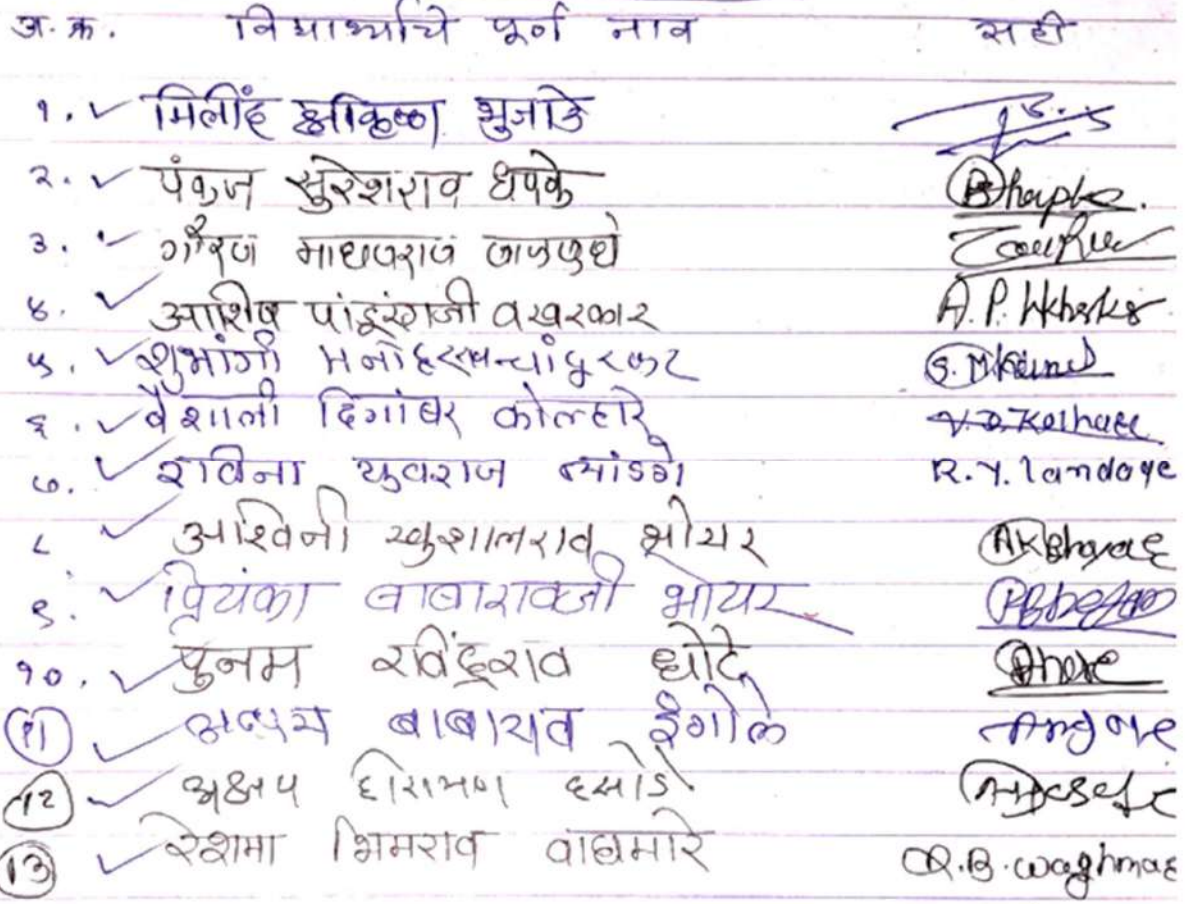 अ. क्र. विद्यार्थ्याचे पूर्ण नाव सही
१. मिलींद श्रीकृष्ण भुजाडे
२. पंकज सुरेशराव धपके
३. गौरव माधवराव
४. आशिष पांडूरंगजी वखरकार A. P.
५. शुभांगी मनोहरराव चांदुरकर S. M.
६. वैशाली दिगांबर कोल्हारे V. D. Kolhare
७. राविना युवराज लांडगे R. Y. landage
८ अश्विनी खुशालराव भोयर AKBhoyar
९. प्रियंका बाबारावजी भोयर
१०. पुनम रविंद्रराव धोटे
११ बाबाराव इंगोले
12 अक्षय हिरामण
13 रेशमा भिमराव वाघमारे R. B. waghmae